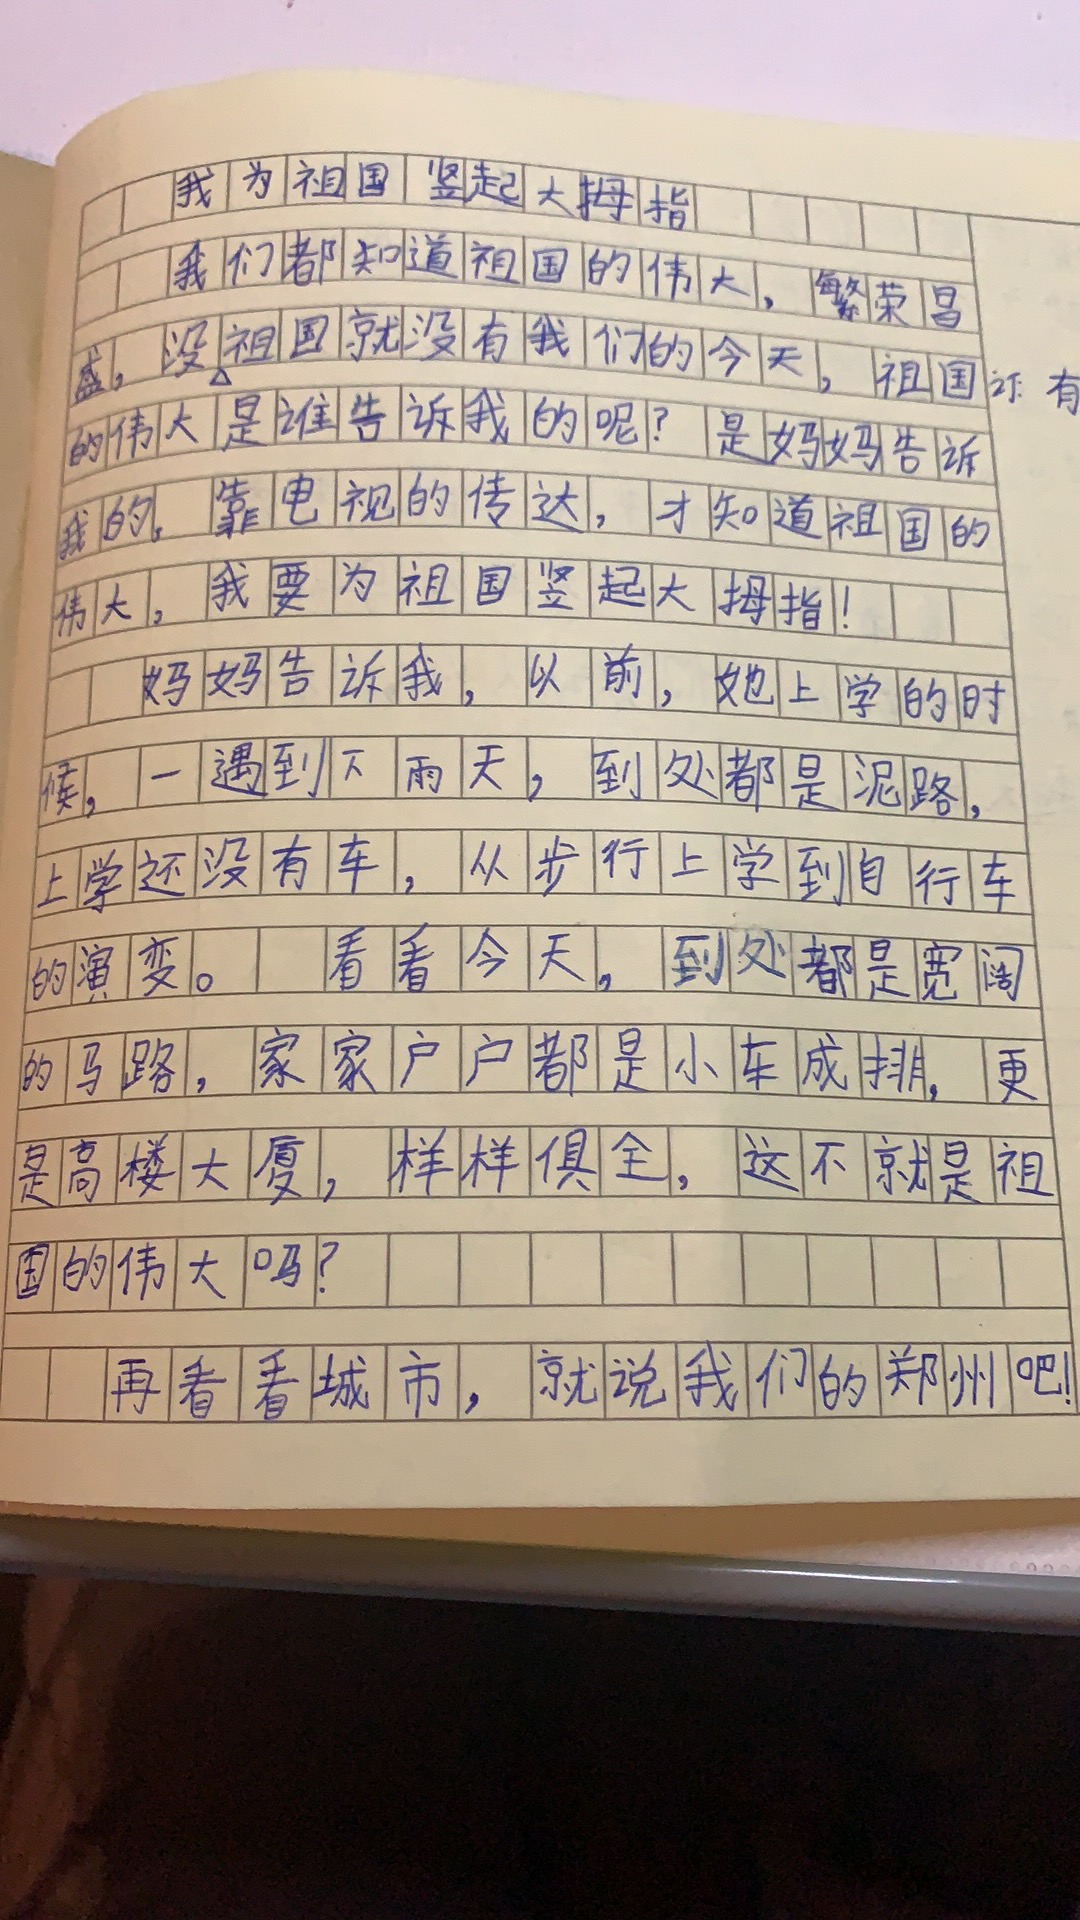 我为祖国竖起大拇指
我们都知道祖国的伟大，繁荣昌
盛，没祖国就没有我们的今天，祖国 还有
的伟大是谁告诉我的呢？是妈妈告诉
我的，靠电视的传达，才知道祖国的
伟大，我要为祖国竖起大拇指！
妈妈告诉我，以前，她上学的时
候，一遇到下雨天，到处都是泥路，
上学还没有车，从步行上学到自行车
的演变。看看今天，到处都是宽阔
的马路，家家户户都是小车成排，更
是高楼大厦，样样俱全，这不就是祖
国的伟大吗？
再看看城市，就说我们的郑州吧！